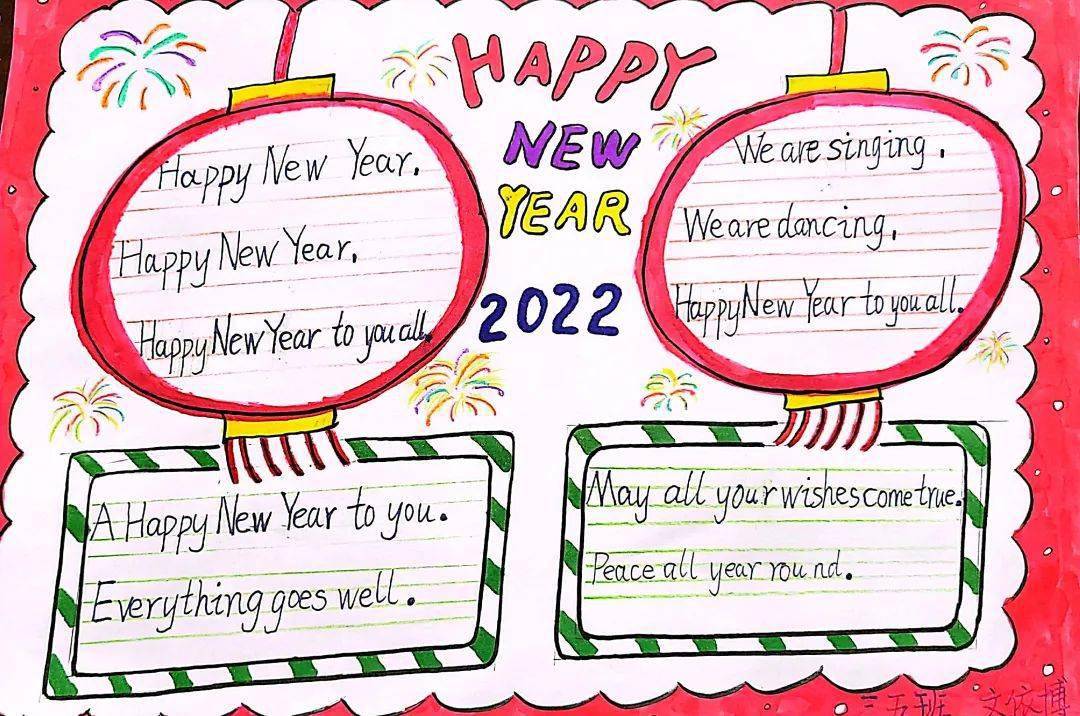 HAPPY
NEW
YEAR
2022
Happy New Year.
Happy New Year.
Happy New Year to you all.
We are singing.
We are dancing.
Happy New Year to you all.
A Happy New Year to you.
Everything goes well.
May all your wishes come true.
Peace all year round.
三五班 文依博